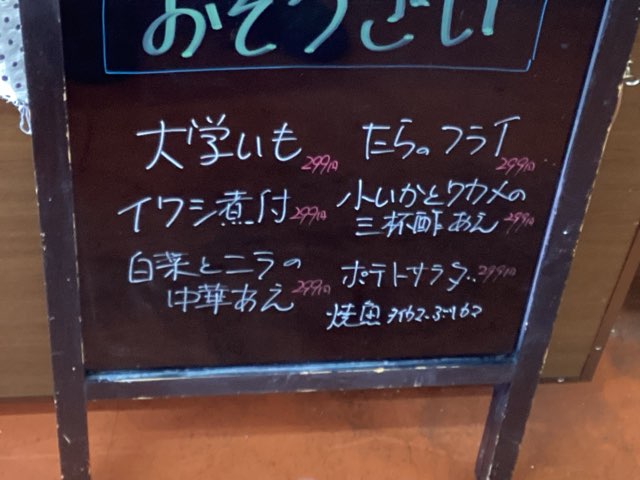 おそうざい
大学いも 299円
イワシ煮付 299円
白菜とニラの
中華あえ 299円
たらのフライ
299円
小いかとワカメの
三杯酢あえ 299円
ポテトサラダ 299円
焼魚